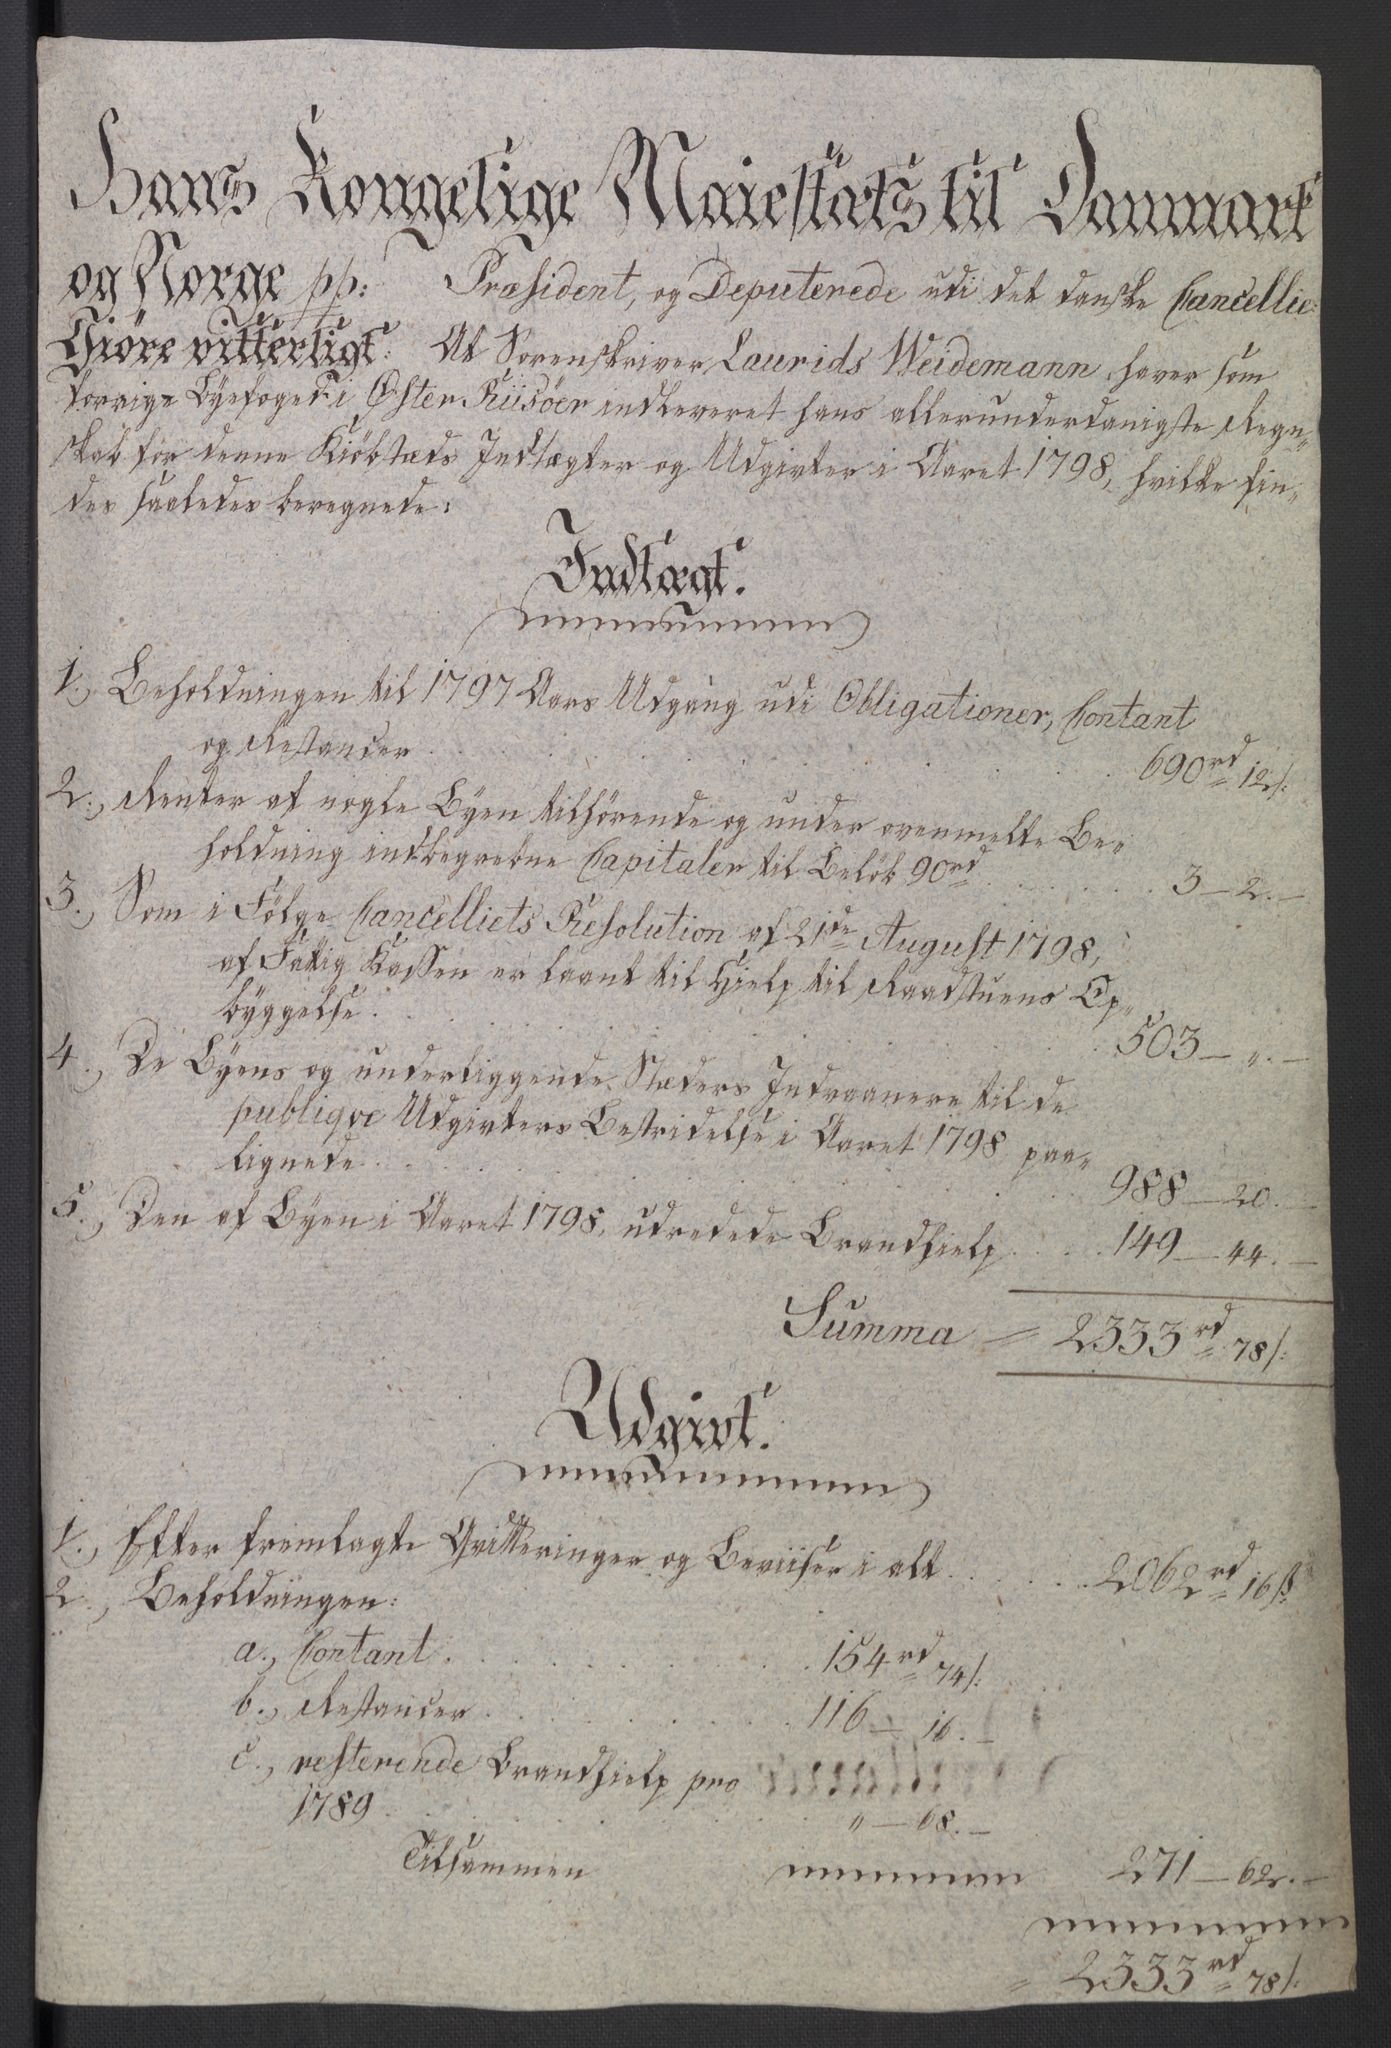 Hans Kongelige Maiestæts til Danmark
og Norge pp: Præsident, og Deputerede udi det danske Cancellie:
Giøre vitterligt: At Sorenskriver Laurids Weidemann, haver som
forrige Byefoged i Øster Riisöer indleveret hans allerunderdanigste Regn„
skab for denne Kiöbstæds Indtægter og Udgivter i Aaret 1798, hvilke fin„
des saaledes beregnede:
Indtægt.
1., Beholdningen til 1797 Aars Udgang udi Obligationer, Contant
og Restancer . . . 690 rd 12 s:
2., Renter af nogle Byen tilhörende og under ovenmelte Be„
holdning indbegrebne Capitaler til Belöb 90 rd . . . 3 — 2. —
3., Som i Fölge Cancelliets Resolution af 21de August 1798,
af Fattig Kassen er laant til Hielp til Raadstuens Op„
byggelse . . . 503 — „. —
4., De Byens og underliggende Stæders Indvaanere til de
publique Udgivters Bestridelse i Aaret 1798 paa„
lignede . . . 988 — 20. —
5., Den af Byen i Aaret 1798, udredede Brandhielp . . . 149 — 44. —
Summa = 2333 rd 78 s:
Udgivt.
1., Efter fremlagte Qvitteringer og Beviiser i alt . . . 2062 rd 16 s:
2., Beholdningen:
a., Contant . . . 154 rd 74 s:
b., Restancer . . . 116 — 16. —
c., resterende Brandhielp pro
1789 . . . „ — 68. —
Tilsammen 271 — 62. —
= 2333 rd 78 s: